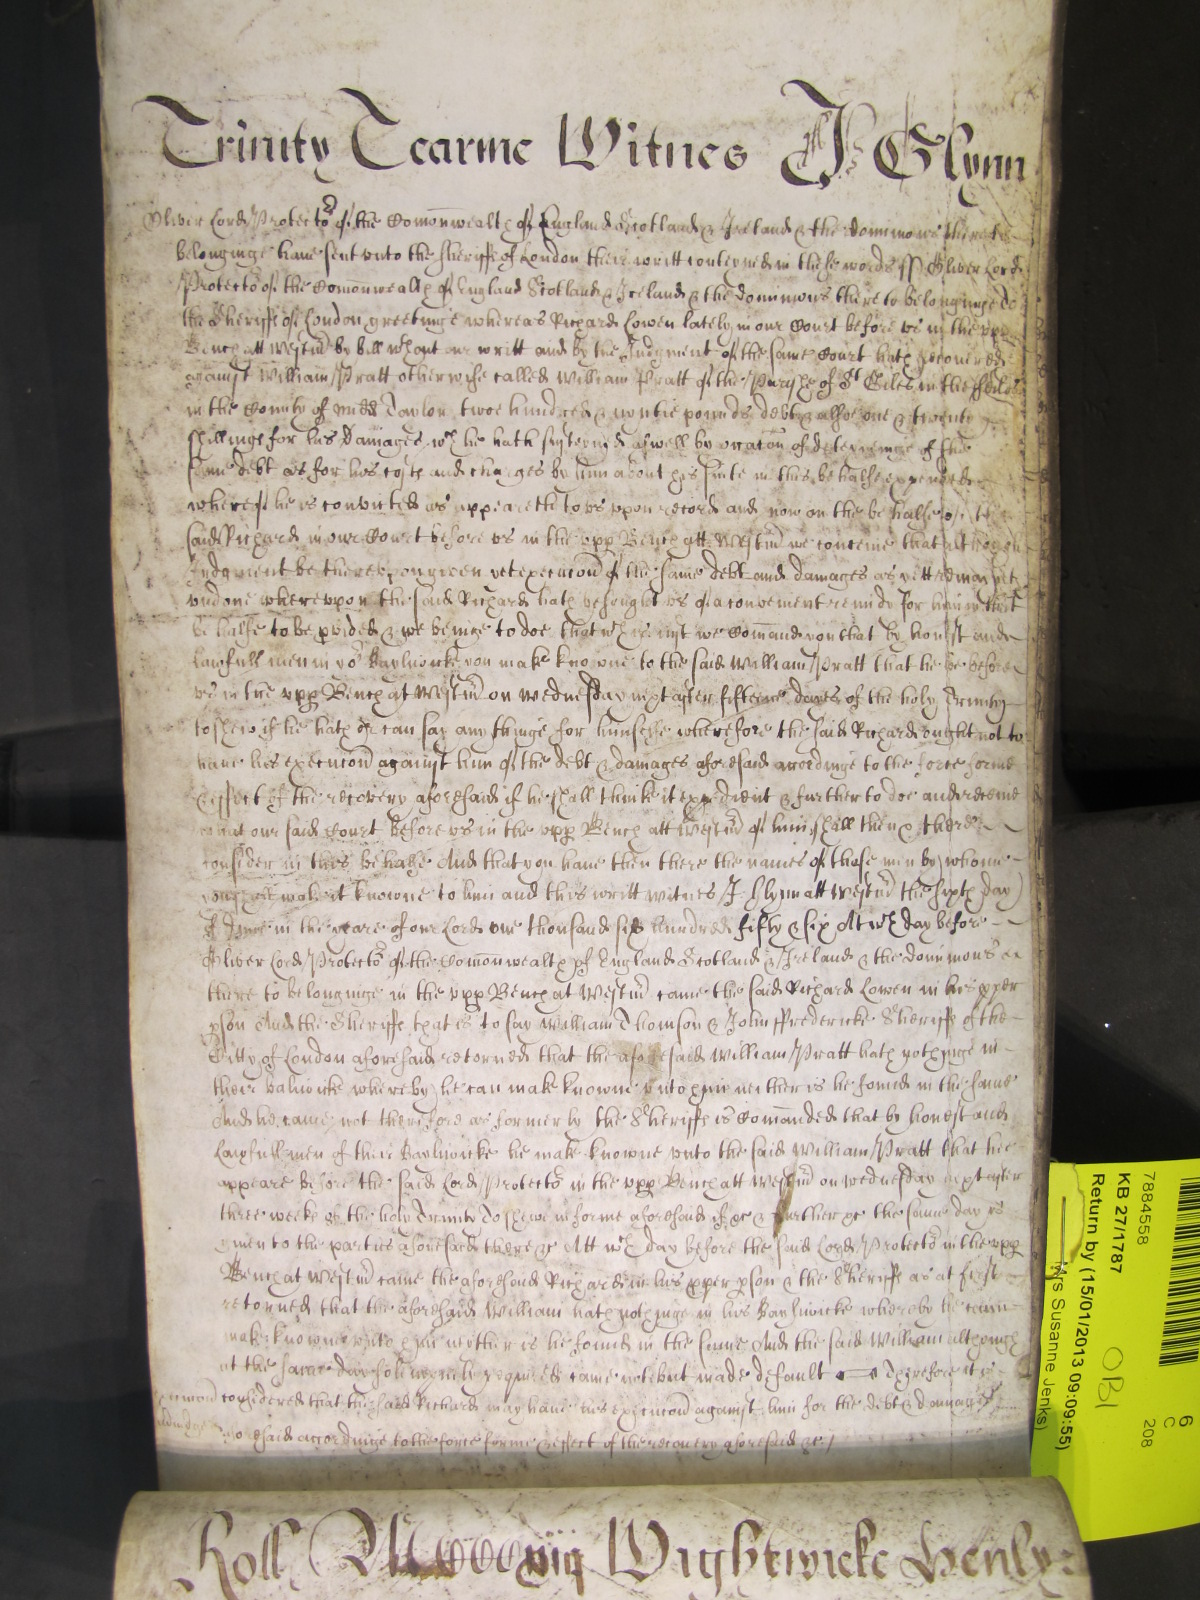 Trinity Tearme Witnes J Glynn
Oliver Lord Protector of the Comonwealth of England Scotland & Ireland & the dominions thereto
belonginge have sent unto the Sheriffs of London their writt conteyned in these words ss Oliver Lord
Protector of the Comonwealth of England Scotland & Ireland & the dominions thereto belonginge To
the Sheriffs of London greetinge whereas Richard Lowen lately in our Court before us in the upp
Bench att Westm by bill wthout our writt and by the Judgment of the same Court hath recovered
against William Pratt otherwise called William Pratt of the Parishe of St Giles in the feilds
in the County of Midd Taylor twoe hundred & pounds debt & alsoe one & twenty
shillinge for his Damages wch he hath susteyned aswell by occacon of deteyninge of the
same debt as for his costs and charges by him about his suite in this behalfe expended
whereof he is convicted as appeareth to us upon record and now on the behalfe of the
said Richard in our Court before us in the upp Bench att Westm we conceive that although
Judgment be thereupon given yet execucon of the same debt and damages as yett remaineth
undone whereupon the said Richard hath besought us of a convenient remidy for him in that
behalfe to be pvided & we beinge to doe that wch is just we Comand you that by honest and
lawfull men in yor Bayliwicke you make knowne to the said William Pratt that he be before
us in the upp Bench at Westm on wednesday next after fifteene dayes of the holy Trinity
to shew if he hath or can say any thinge for himselfe wherefore the said Richard ought not to
have his execucon against him of the debt & damages aforesaid accordinge to the force forme
& effect of the recovery aforesaid if he shall think it expedient & further to doe and receive
what our said Court before us in the upp Bench att Westm of him shall then & there
consider in this behalfe And that you have then there the names of those men by whome
you shall make it knowne to him and this writt witnes J Glynn att Westm the sixth day
of June in the yeare of our Lord one thousand six hundred fifty & six At wch day before
Oliver Lord Protector of the Comonwealth of England Scotland & Ireland & the dominions
there to belonginge in the upp Bench at Westm came the said Richard Lowen in his pper
pson And the Sheriffs that is to say William Thomson & John Fredericke Sheriffs of the
Citty of London aforesaid retorned that the aforesaid William Pratt hath nothinge in
their baliwicke whereby he can make knowne unto him neither is he found in the same
And he came not therefore as formerly the Sheriffs is Comanded that by honest and
Lawfull men of their Bayliwicke he make knowne unto the said William Pratt that hee
appeare before the said Lord Protector in the upp Bench att Westm on wednesday next after
three weeks of the holy Trinity To shew in forme aforesaid if &c & further &c the same day is
given to the parties aforesaid there &c Att wch day before the said Lord Protector in the upp
Bench at Westm came the aforesaid Richard in his pper pson & the Sheriffs as at first
retorned that the aforesaid William hath nothinge in his Bayliwicke whereby he cann
make knowne unto him neither is he found in the same And the said William although
at the same day solemnely required came not but made default Therefore it is
considered that the said Richard may have his execucon against him for the debt & damages
aforesaid accordinge to the force forme & effect of the recovery aforesaid &c
Roll Wightwicke Henly:
7884558
KB 27/1787
Return by (15/01/2013 09:09:55)
Mrs Susanne Jenks)
OBI
6
C
208